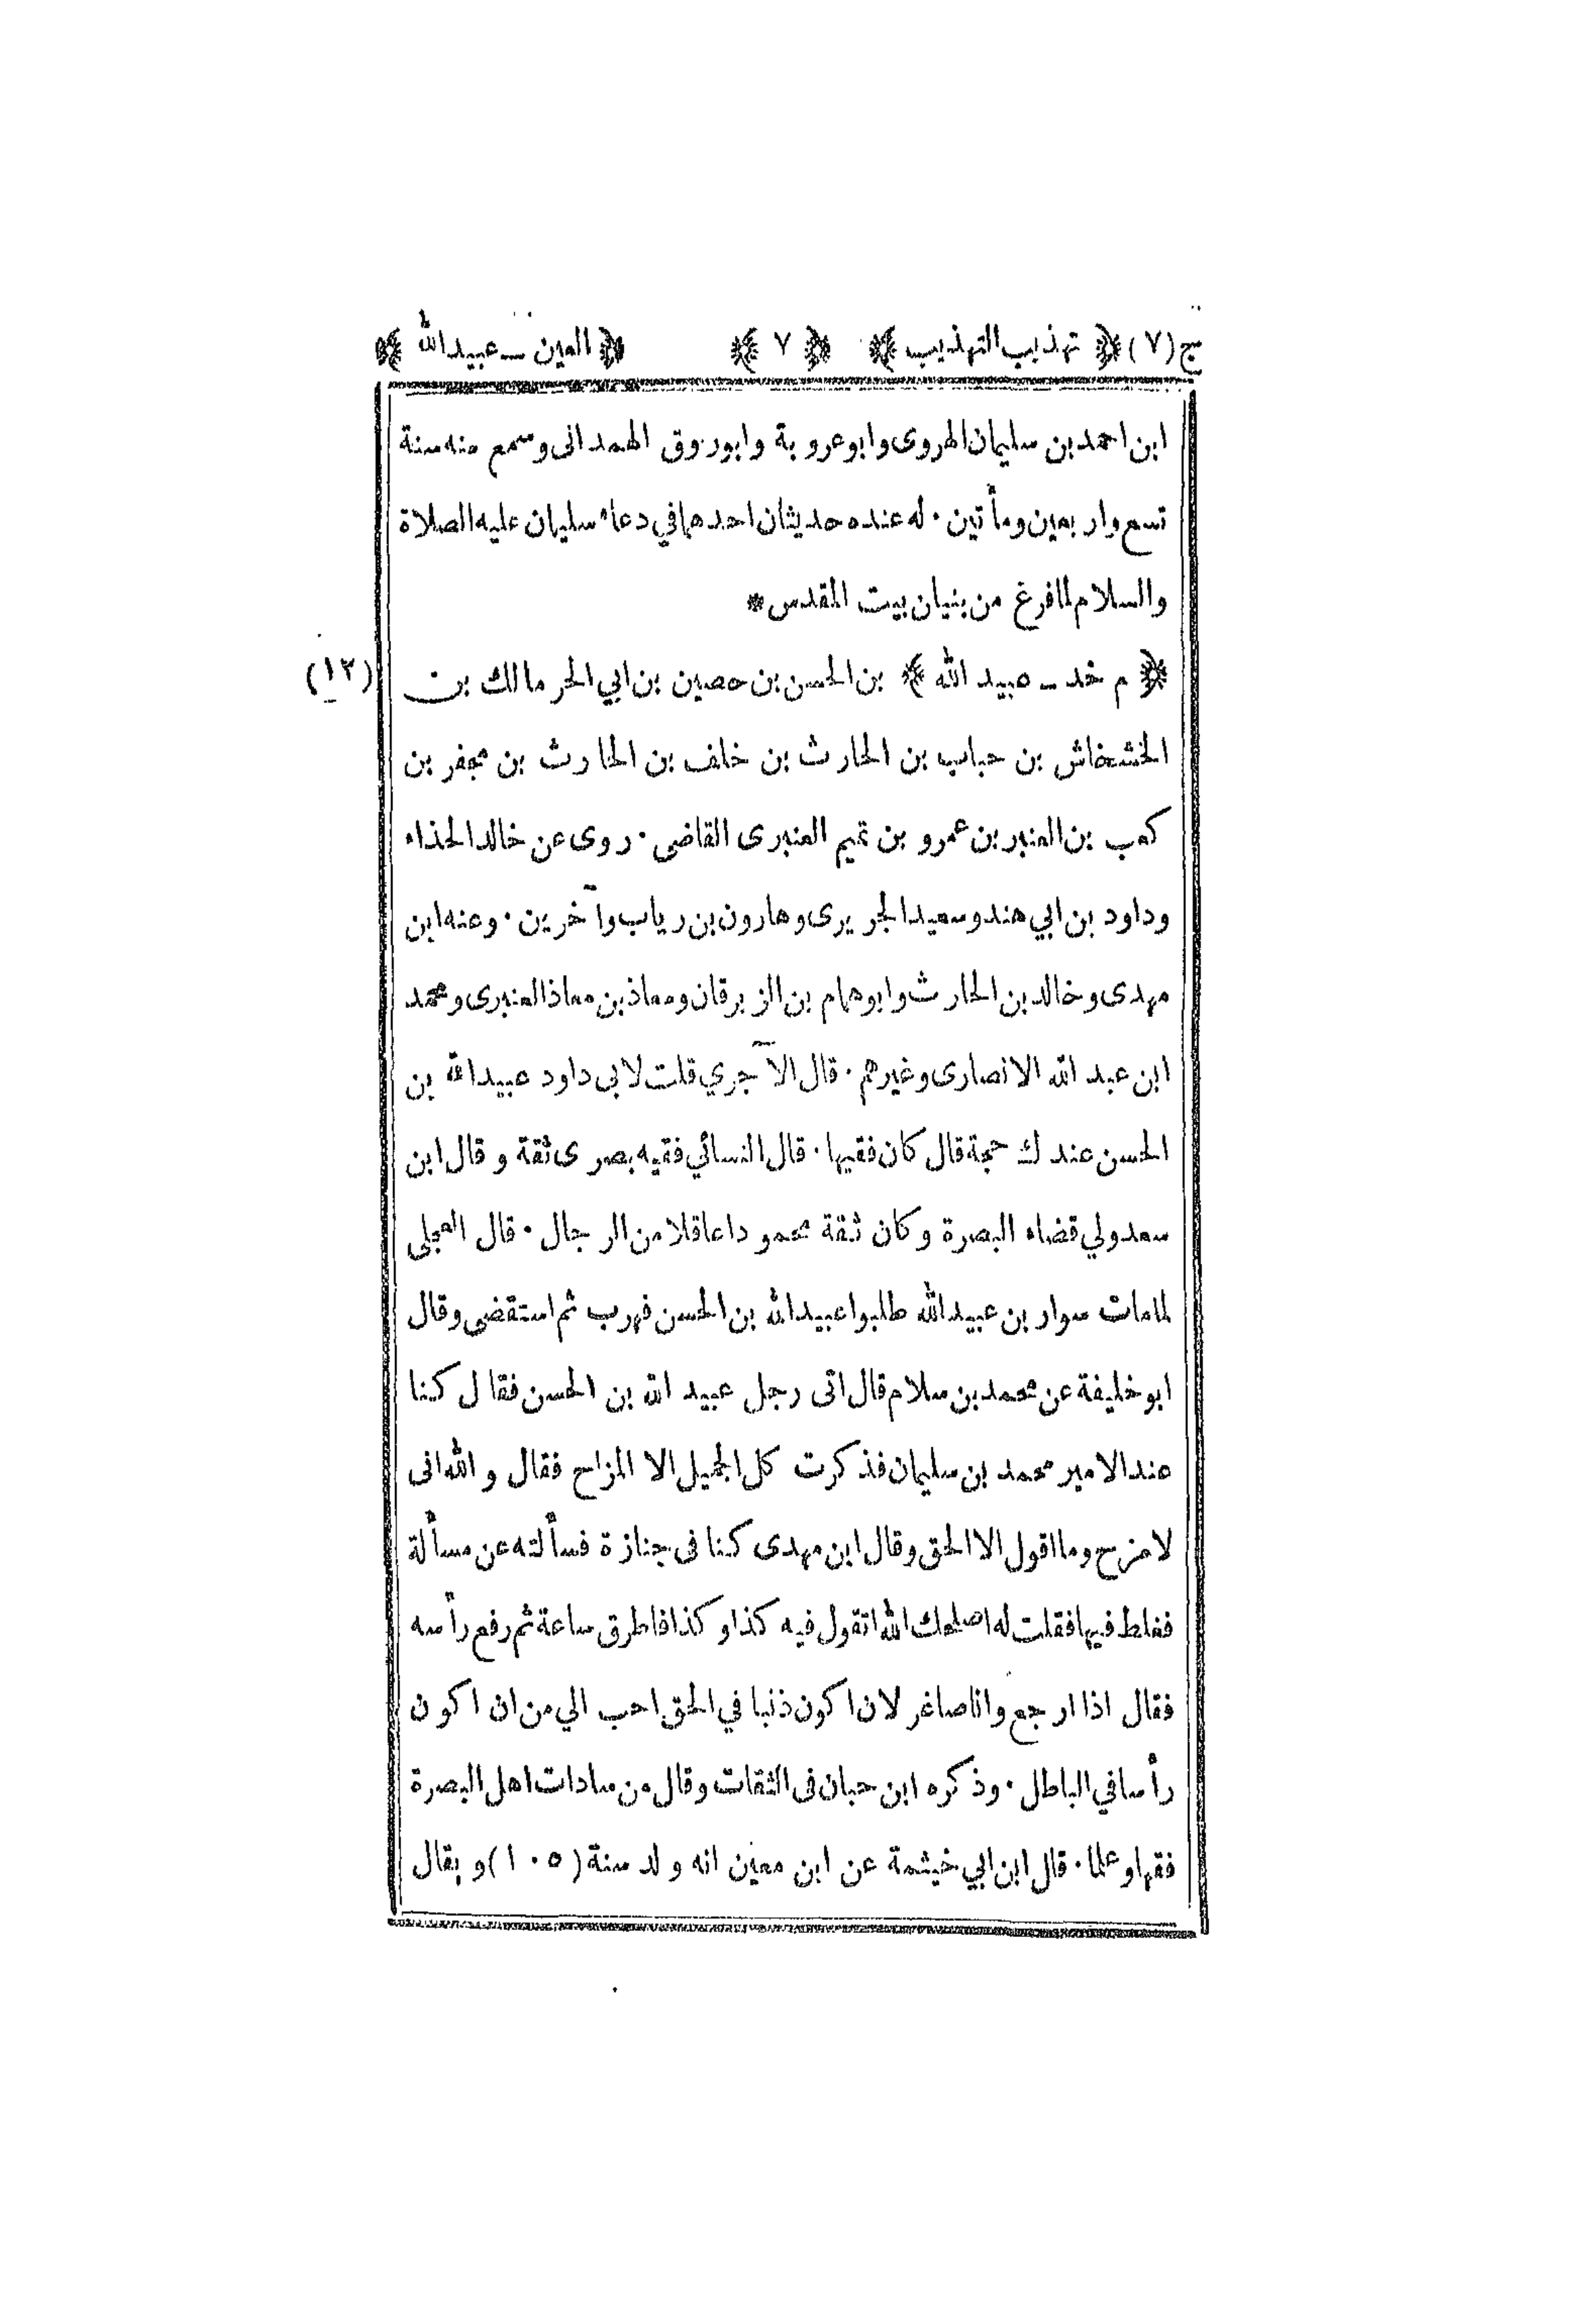 ج (٧) ﴿ تهذيب التهذيب ﴾ ﴿ ٧ ﴾ ﴿ العين ـ عبيدالله ﴾
ابن احمد بن سليمان الهروى وابو عروبة وابوروق الهمدانى وسمع منه سنة
تسع واربعين ومأتين · له عنده حديثان احدهما في دعاء سليمان عليه الصلاة
والسلام لما فرغ من بنيان بيت المقدس *
﴿ م خد ـ عبيد الله ﴾ بن الحسن بن حصين بن ابي الحر مالك بن (١٢)
الخشخاش بن حباب بن الحارث بن خلف بن الحارث بن مجفر بن
كعب بن العنبر بن عمرو بن تميم العنبرى القاضى · روى عن خالد الحذاء
وداود بن ابي هند وسعيد الجريرى وهارون بن رياب وآخرين · وعنه ابن
مهدى وخالد بن الحارث وابو همام بن الزبرقان ومعاذ بن معاذ العنبرى ومحمد
ابن عبد الله الانصارى وغيرهم · قال الآجري قلت لابى داود عبيدالله بن
الحسن عندك حجة قال كان فقيها · قال النسائي فقيه بصرى ثقة وقال ابن
سعد ولي قضاء البصرة وكان ثقة محمودا عاقلا من الرجال · قال العجلى
لما مات سوار بن عبيدالله طلبوا عبيدالله بن الحسن فهرب ثم استقضى وقال
ابو خليفة عن محمد بن سلام قال اتى رجل عبيد الله بن الحسن فقال كنا
عند الامير محمد بن سليمان فذكرت كل الجميل الا المزاح فقال والله انى
لامزح وما اقول الا الحق وقال ابن مهدى كنا فى جنازة فسألته عن مسألة
فغلط فيها فقلت له اصلحك الله اتقول فيه كذا وكذا فاطرق ساعة ثم رفع رأسه
فقال اذا ارجع وانا صاغر لان اكون ذنبا في الحق احب الي من ان اكون
رأسا في الباطل · وذكره ابن حبان فى الثقات وقال من سادات اهل البصرة
فقها وعلما · قال ابن ابي خيثمة عن ابن معين انه ولد سنة (١٠٥) ويقال